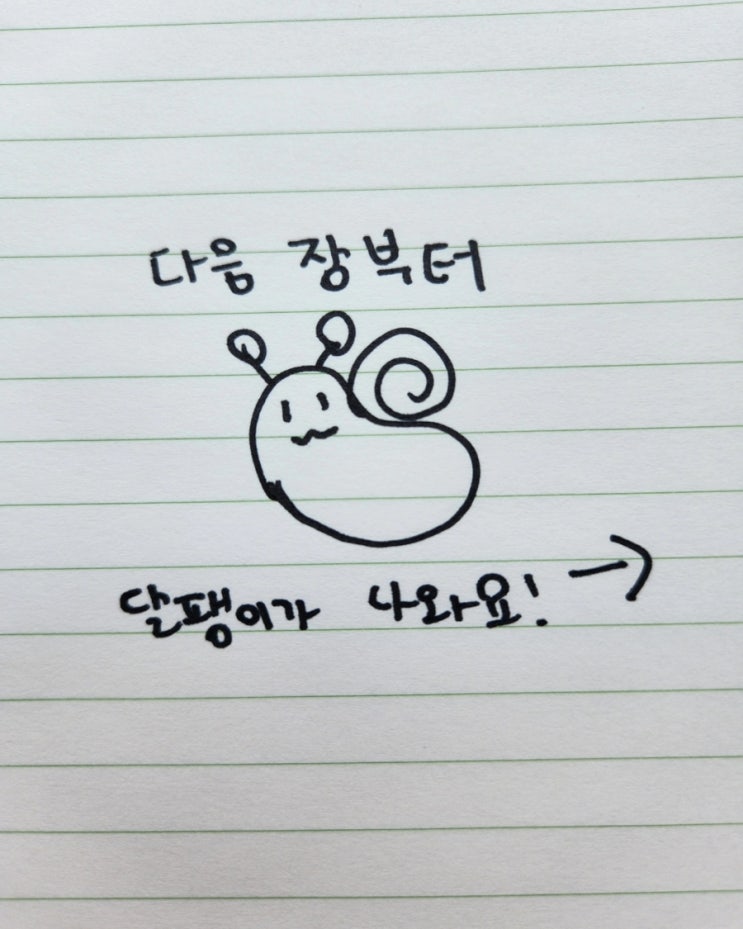 다음 장부터
달팽이가 나와요! →